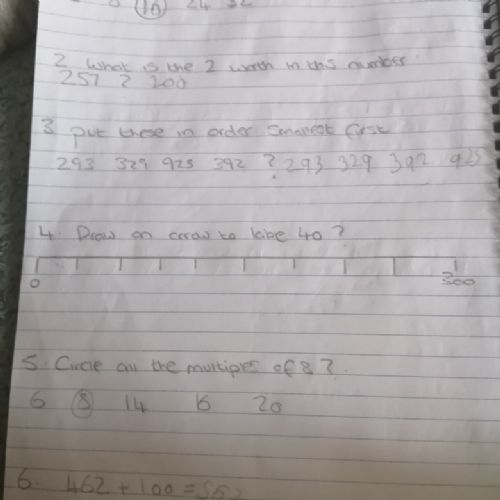 (16) 24 32
2 What is the 2 worth in this number
257 ? 200
3 put these in order smallest first
293 329 925 392 ? 293 329 392 925
4. Draw an arrow to 40 ?
0 300
5. Circle all the multiples of 8 ?.
6 8 14 16 20
6. 462 + 100 = 562